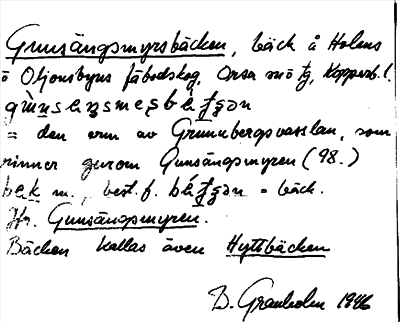 Gunsängsmyrsbäcken, bäck å Holens
o Oljonsbyns fäbodskog, Orsa sn o tg, Kopparb. l.
= den arm av Grunubergsvasslan, som
rinner genom Gunsängsmyren (98.)
bęk m., best. f. = bäck.
Jfr. Gunsängsmyren.
Bäcken kallas även Hyttbäcken
B. Granholm 1946